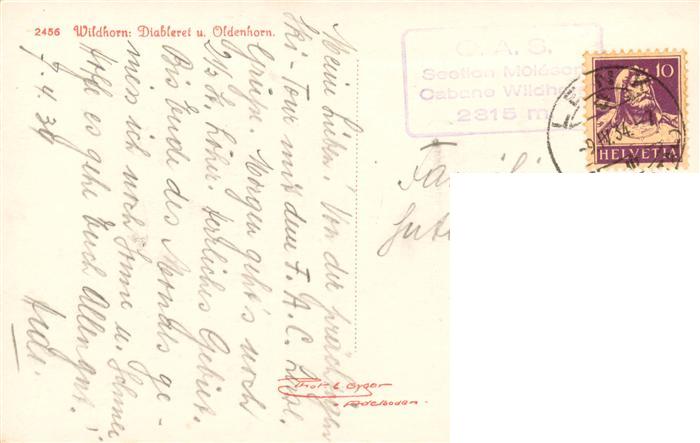 2456 Wildhorn: Diableret u. Oldenhorn.
C. A. S.
Section Moléson
Cabane Wildho
2315 m
10
HELVETIA
Meine Lieben! Von der prächtigen
Ski-Tour mit dem F. A. C.
Grüße. Morgen geht's noch
höher. Herrliches Gebiet.
Bis Ende des Monats ge-
niess ich noch Sonne u. Schnee
Hoffe es gehe Euch Allen gut!
7.4.34
Famili
Gute
Phot. E. Gyger
Adelboden.